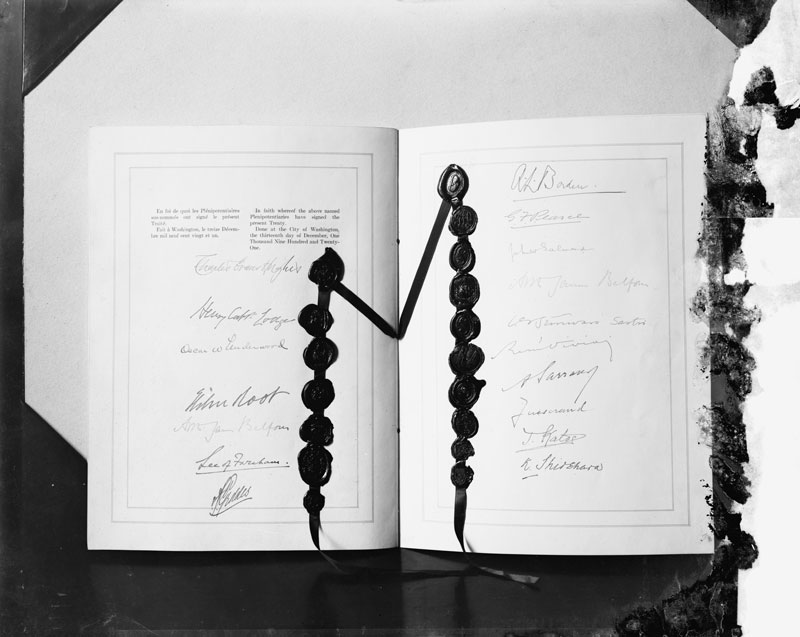 En foi de quoi les Plénipotentiaires
sus-nommés ont signé le présent
Traité.
Fait à Washington, le treize Décem-
bre mil neuf cent vingt-et un.
In faith whereof the above named
Plenipotentiaries have signed the
present Treaty.
Done at the City of Washington,
the thirteenth day of December, One
Thousand Nine Hundred and Twenty-
One.
Charles Evans Hughes
Henry Cabot Lodge
Oscar W Underwood
Elihu Root
Arthur James Balfour
Lee of Fareham.
A Geddes
R. L. Borden.
G F Pearce
John Salmond
Arthur James Balfour.
Srinivasa Sastri
René Viviani
A Sarraut
Jusserand
T. Kato
K. Shidehara